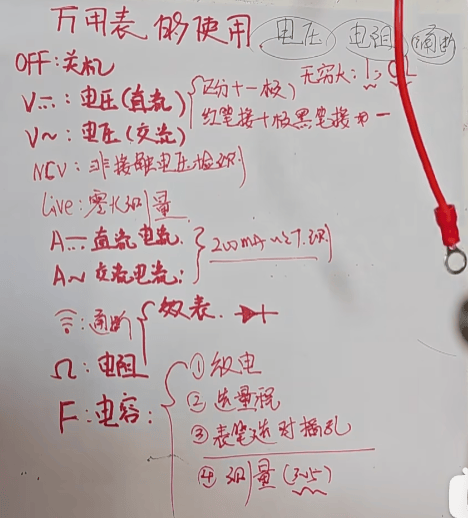 万用表的使用 电压 电阻 通断
OFF:关机 无穷大:1、OL
V⎓:电压(直流) 区分十一极
V~:电压(交流) 红笔接+极黑笔接 一
NCV:非接触电压检测
Live:零火测量
A⎓直流电流. 200mA以下测
A~交流电流:
通断 效表.
Ω:电阻 ①
F:电容: ②选量程
③表笔选对插孔
④测量